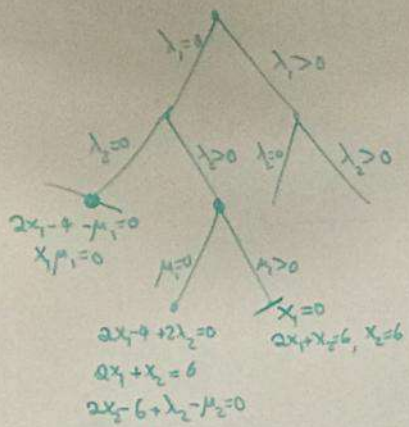 λ₁=0
λ₁>0
λ₂=0
λ₂>0
λ₂=0
λ₂>0
2x₁-4-μ₁=0
x₁μ₁=0
μ₁=0
μ₁>0
x₁=0
2x₁+x₂=6, x₂=6
2x₁-4+2λ₂=0
2x₁+x₂=6
2x₂-6+λ₂-μ₂=0